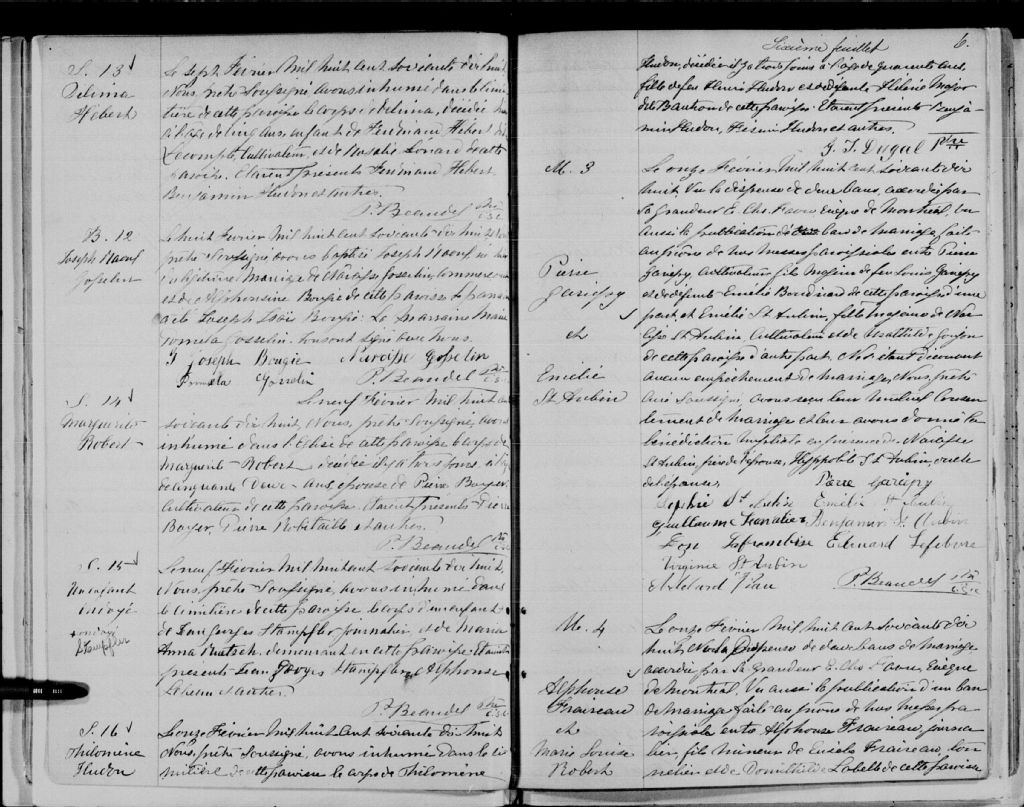 S. 13
Delima
Hébert
Le sept Février mil huit cent soixante dix huit
Nous, prêtre soussigné avons inhumé dans le cime-
tière de cette paroisse le corps de Delima, décédée
à l'age de cinq ans enfant de Ferdinand Hébert dit
Lecompte, cultivateur, et de Rosalie Lonard de cette
paroisse. Etaient présents Ferdinand Hébert,
Benjamin Hudon et autres.
P. Beaudet Ptre
B. 12
Joseph
Josselin
Le huit Février mil huit cent soixante dix huit Nous
prêtre soussigné avons baptisé Joseph
du légitime mariage de Narcisse Josselin
et de Alphonsine Bougie de cette paroisse Le parrain
a été Joseph Bougie. La marraine
Josselin. Lesquels ont signé avec nous.
Joseph Bougie Narcisse Gosselin
Gosselin P. Beaudet Ptre
S. 14
Marguerite
Robert
Le neuf Février mil huit cent
soixante dix huit, Nous, prêtre soussigné, avons
inhumé dans l'Eglise de cette paroisse le corps de
Marguerite Robert décédée il y a trois jours, à l'age
de cinquante deux ans épouse de Pierre Boyer
cultivateur de cette paroisse. Etaient présents Pierre
Boyer, Pierre Robitaille et autres.
P. Beaudet Ptre
S. 15
Un enfant
ondoyé
Stampfler
Le neuf Février mil huit cent soixante dix huit,
Nous, prêtre soussigné, avons inhumé dans
le cimetière de cette paroisse le corps d'un enfant
de Jean Georges Stampfler journalier, et de Maria
Anna demeurant en cette paroisse. Etaient
présents Jean Georges Stampfler, Alphonse
et autres.
P. Beaudet Ptre
S. 16
Philomène
Hudon
Le onze Février mil huit cent soixante dix huit
Nous, prêtre soussigné, avons inhumé dans le ci-
metière de cette paroisse le corps de Philomène
Sixième feuillet 6.
Hudon, décédée il y a trois jours à l'age de quarante ans,
fille de feu Henri Hudon et de défunte Hélène Major
de cette paroisse. Etaient présents Benja-
min Hudon, Hudon et autres.
G. T. Dugal Ptre
M. 3
Pierre
Gariepy
et
Emélie
St Aubin
Le onze Février mil huit cent soixante dix
huit. Vu la dispense de deux bans, accordée par
Sa Grandeur E. Chs. Fabre, Evêque de Montréal, Vu
aussi la publication d'un ban de mariage faite
au prône de nos messes paroissiales entre Pierre
Gariepy, cultivateur fils majeur de feu Louis Gariepy
et de défunte Emélie Boudriard de cette paroisse d'une
part, et Emélie St Aubin, fille majeure de Nar-
cisse St Aubin, cultivateur et de Mathilde Goujon
de cette paroisse d'autre part. Ne s'étant découvert
aucun empêchement de mariage, Nous, prêtre
curé soussigné, avons reçu leur mutuel consen-
tement de mariage et leur avons donné la
bénédiction nuptiale en présence de Narcisse
St Aubin, père de l'épouse, Hyppolite St Aubin, oncle
de l'épouse. Pierre Gariepy
Sophie St Aubin Emélie St Aubin
Guillaume Benjamin St Aubin
Laframboise Edouard Lefebvre
Virginie St Aubin
Piau P. Beaudet Ptre
M. 4
Alphonse
Fraireau
et
Marie Louise
Robert
Le onze Février mil huit cent soixante dix
huit Vu la dispense de deux bans de mariage
accordée par Sa Grandeur E. Chs Fabre, Evêque
de Montréal. Vu aussi la publication d'un ban
de mariage faite au prône de nos messes pa-
roissiales entre Alphonse Fraireau, journa-
lier, fils mineur de Fraireau, ton-
nelier et de Domithilde Labelle de cette paroisse